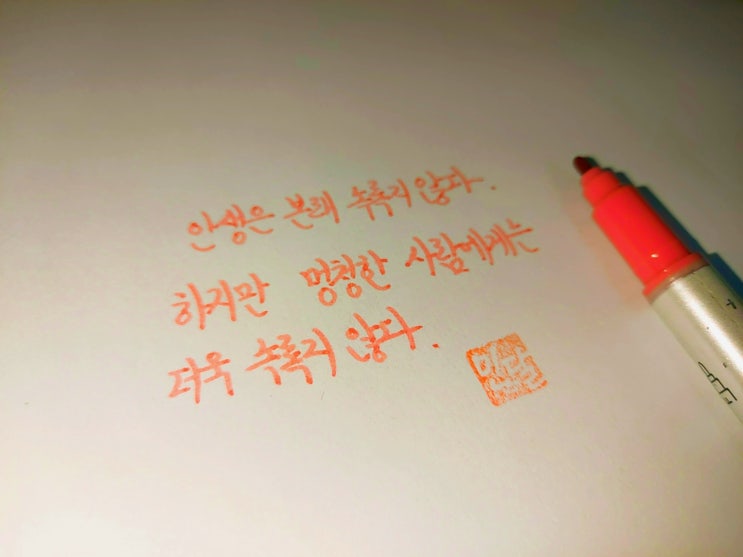 인생은 본래 속록지 않다.
하지만 멍청한 사람에게는
더욱 속록지 않다.